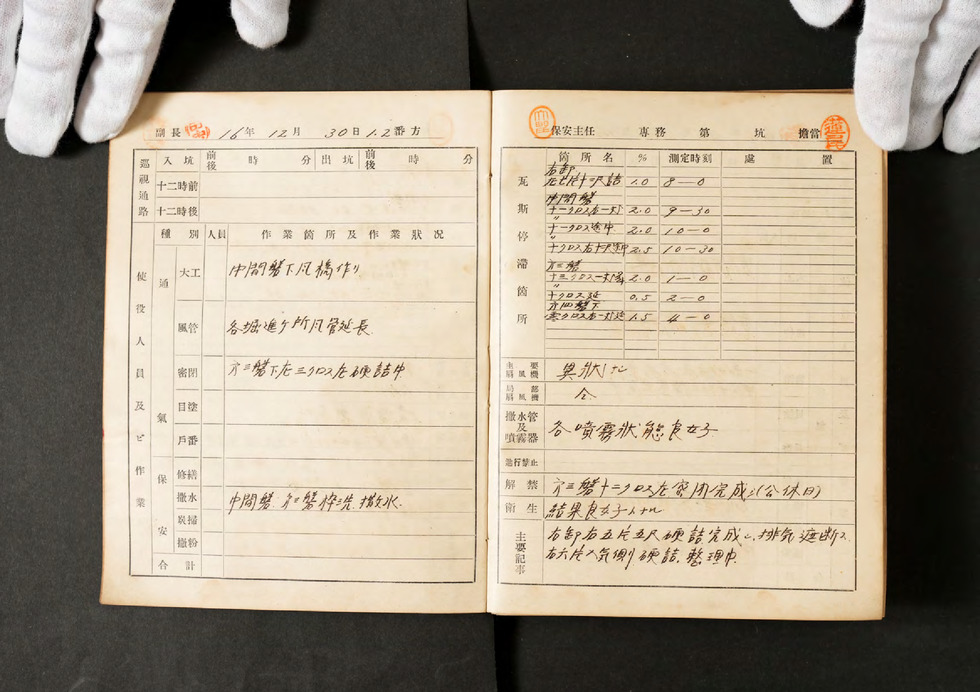 副長 16年 12月 30日 1.2番方
巡視通路
入坑 前後 時 分 出坑 前後 時 分
十二時前
十二時後
使役人員及ビ作業
種別 人員 作業箇所及作業狀況
通氣
大工 中間盤下風橋作リ
風管 各堀進ケ所風管延長
密閉 方三盤下左三クロス左硬詰中
目塗
戶番
保安
修繕
撒水 中間盤 方三盤枠洗 撒水
炭掃
撒粉
合計
保安主任 專務 第 坑 擔當
瓦斯停滯箇所
箇所名 % 測定時刻 處置
右卸
1.0 8-0
中間盤
2.0 9-30
〃
十一クロス途中 2.0 10-0
2.5 10-30
方三盤
2.0 1-0
〃
十クロス延 0.5 2-0
方四盤下
1.5 4-0
主要扇風機 異狀ナシ
局部扇風機 仝
撒水管及噴霧器 各噴霧狀態良好
進行禁止
解禁 方三盤十二クロス左密閉完成ス(公休日)
衞生 結果良好
主要記事 右卸右五片五尺硬詰完成シ、排氣遮斷ス
右六片入氣側硬詰整理中